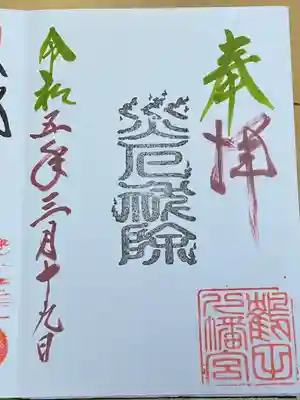 奉拝
災厄祓除
鶴山
八幡宮
令和五年三月十九日